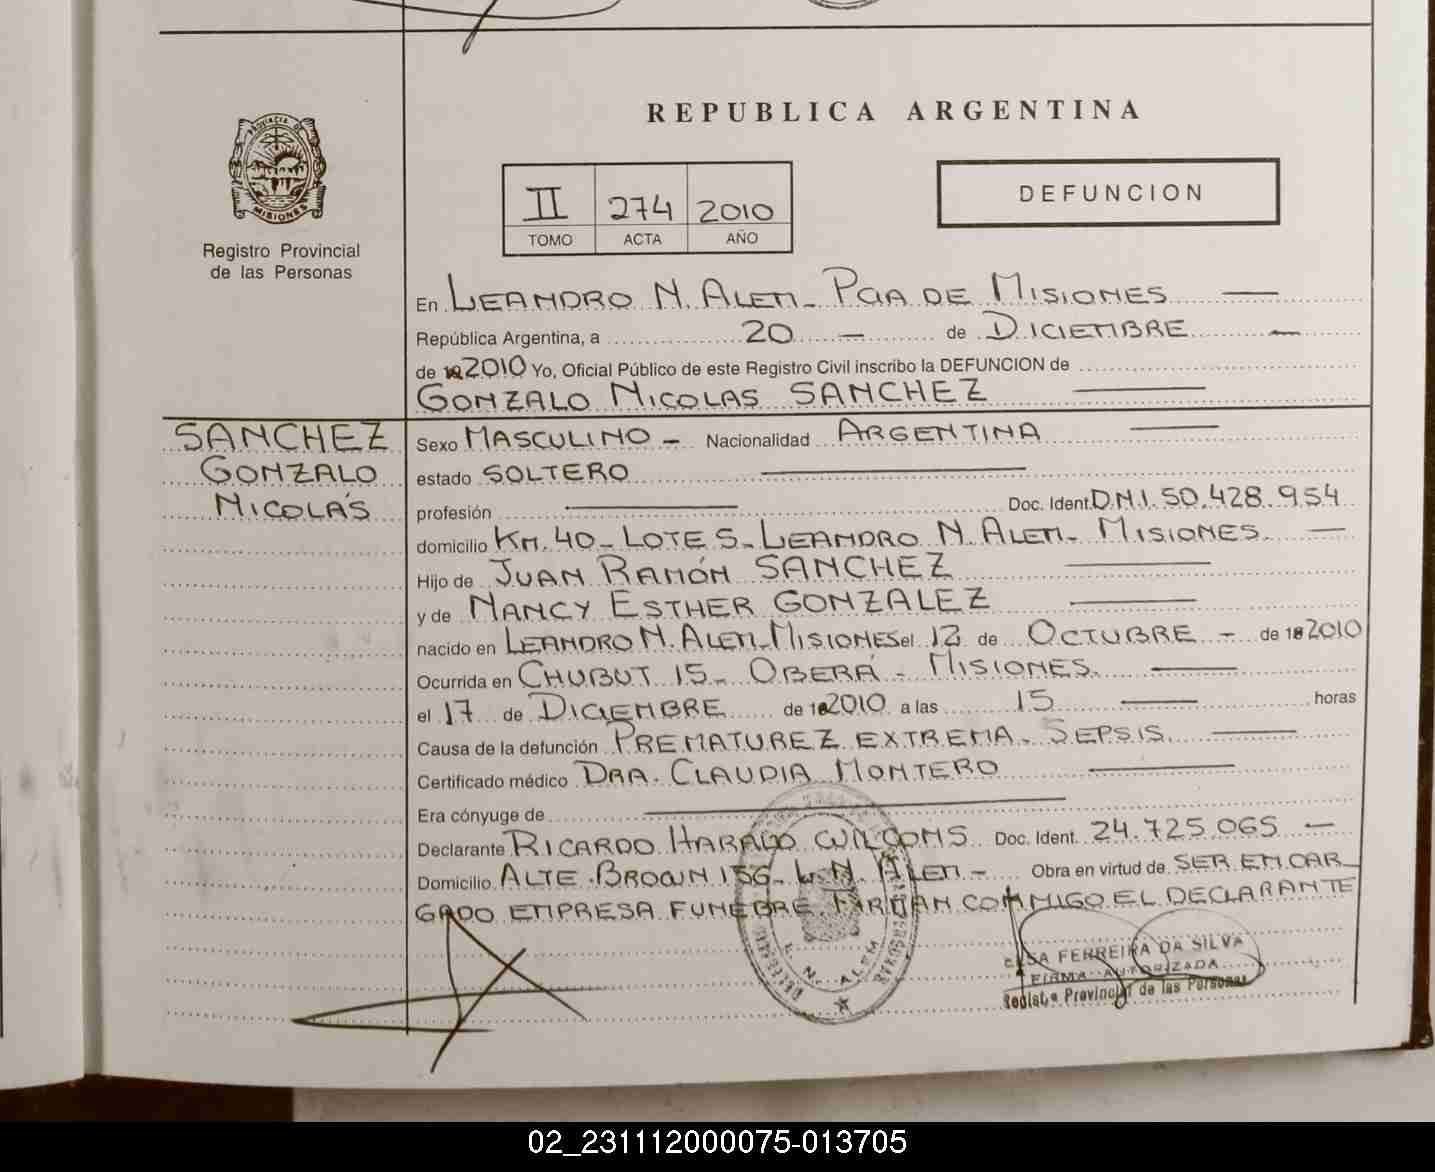 REPUBLICA ARGENTINA
PROVINCIA DE MISIONES
Registro Provincial
de las Personas
II 274 2010
TOMO ACTA AÑO
DEFUNCION
En LEANDRO N. ALEM - PCIA DE MISIONES
República Argentina, a 20 - de DICIEMBRE
de 2010 Yo, Oficial Público de este Registro Civil inscribo la DEFUNCION de
GONZALO NICOLAS SANCHEZ
SANCHEZ
GONZALO
NICOLÁS
Sexo MASCULINO - Nacionalidad ARGENTINA
estado SOLTERO
profesión Doc. Ident. D.N.I. 50.428.954
domicilio KM. 40 - LOTE 5 - LEANDRO N. ALEM - MISIONES.
Hijo de JUAN RAMÓN SANCHEZ
y de NANCY ESTHER GONZALEZ
nacido en LEANDRO N. ALEM - MISIONES el 12 de OCTUBRE - de 2010
Ocurrida en CHUBUT 15 - OBERÁ - MISIONES.
el 17 de DICIEMBRE de 2010 a las 15 horas
Causa de la defunción PREMATUREZ EXTREMA - SEPSIS.
Certificado médico DRA. CLAUDIA MONTERO
Era cónyuge de
Declarante RICARDO Doc. Ident. 24.725.065 -
Domicilio ALTE. BROWN 156 - L. N. ALEM - Obra en virtud de SER ENCAR
GADO EMPRESA FUNEBRE. FIRMAN CONMIGO EL DECLARANTE
L. N. ALEM
FERREIRA DA SILVA
FIRMA AUTORIZADA
Registro Provincial de las Personas
02_231112000075-013705